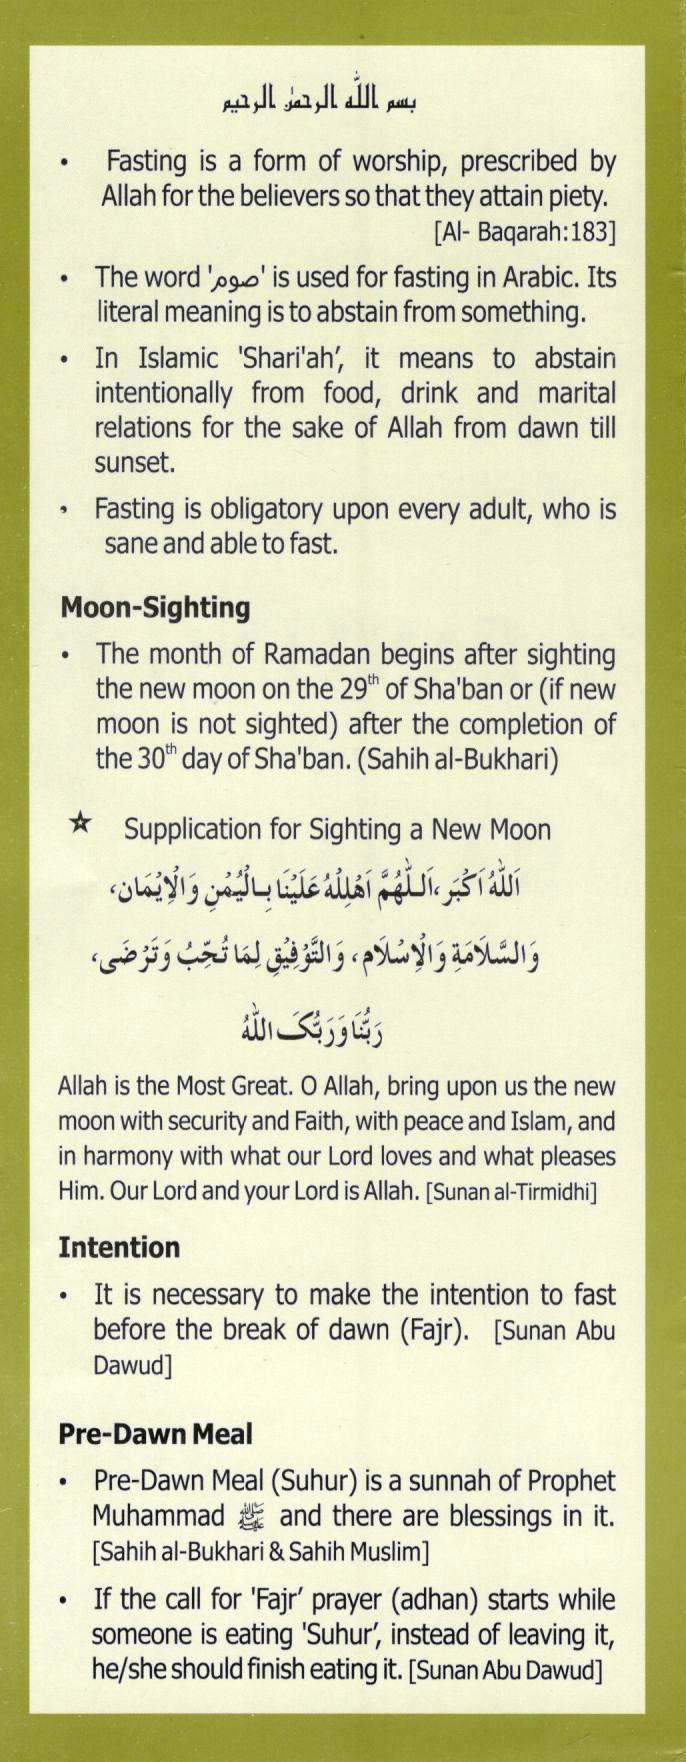 بسم الله الرحمن الرحيم
• Fasting is a form of worship, prescribed by
Allah for the believers so that they attain piety.
[Al- Baqarah:183]
• The word 'صوم' is used for fasting in Arabic. Its
literal meaning is to abstain from something.
• In Islamic 'Shari'ah’, it means to abstain
intentionally from food, drink and marital
relations for the sake of Allah from dawn till
sunset.
• Fasting is obligatory upon every adult, who is
sane and able to fast.
Moon-Sighting
• The month of Ramadan begins after sighting
the new moon on the 29th of Sha'ban or (if new
moon is not sighted) after the completion of
the 30th day of Sha'ban. (Sahih al-Bukhari)
☆ Supplication for Sighting a New Moon
اَللّٰهُ اَكْبَر، اَللّٰهُمَّ اَهْلِلْهُ عَلَيْنَا بِالْيُمْنِ وَالْاِيْمَان،
وَالسَّلَامَةِ وَالْاِسْلَام، وَالتَّوْفِيْقِ لِمَا تُحِبُّ وَتَرْضَى،
رَبُّنَا وَرَبُّكَ اللّٰهُ
Allah is the Most Great. O Allah, bring upon us the new
moon with security and Faith, with peace and Islam, and
in harmony with what our Lord loves and what pleases
Him. Our Lord and your Lord is Allah. [Sunan al-Tirmidhi]
Intention
• It is necessary to make the intention to fast
before the break of dawn (Fajr). [Sunan Abu
Dawud]
Pre-Dawn Meal
• Pre-Dawn Meal (Suhur) is a sunnah of Prophet
Muhammad ﷺ and there are blessings in it.
[Sahih al-Bukhari & Sahih Muslim]
• If the call for 'Fajr’ prayer (adhan) starts while
someone is eating 'Suhur’, instead of leaving it,
he/she should finish eating it. [Sunan Abu Dawud]